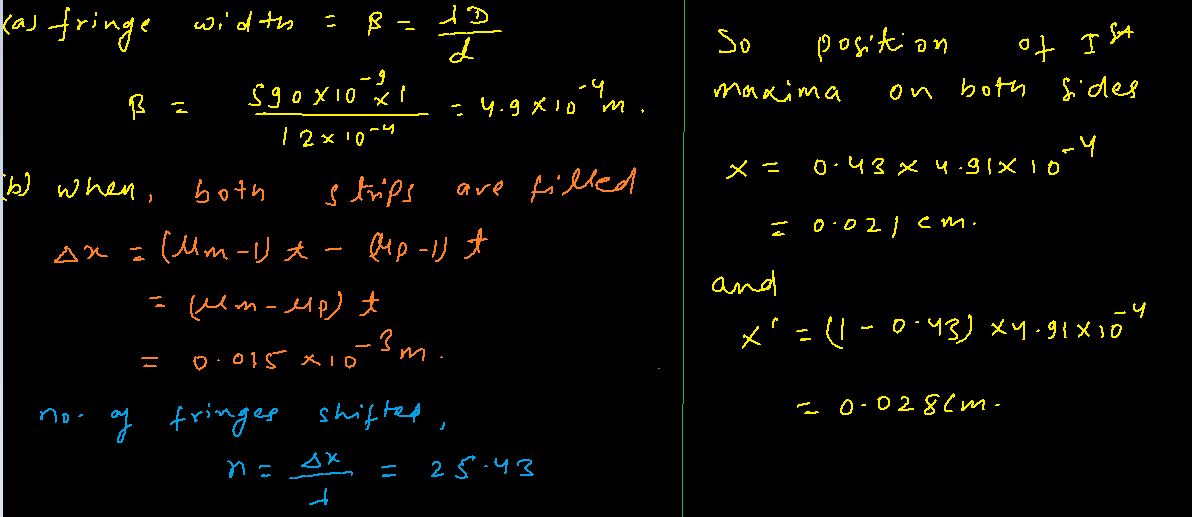 (a) fringe width = β = λD/d
β = 590×10⁻⁹×1 / 12×10⁻⁴ = 4.9×10⁻⁴m.
(b) when, both strips are filled
Δx = (μm-1) t - (μp-1) t
= (μm-μp) t
= 0.015×10⁻³m.
no. of fringes shifted,
n = Δx/λ = 25.43
So position of Ist
maxima on both sides
x = 0.43 × 4.91×10⁻⁴
= 0.021 cm.
and
x' = (1-0.43) ×4.91×10⁻⁴
= 0.028cm.